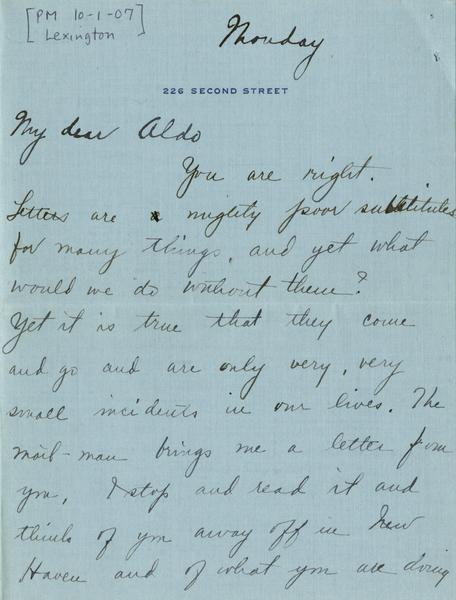 [PM 10-1-07]
Lexington
Monday
226 SECOND STREET
My dear Aldo
You are right.
Letters are mighty poor substitutes
for many things, and yet what
would we do without them?
Yet it is true that they come
and go and are only very, very
small incidents in our lives. The
mail-man brings me a letter from
you, I stop and read it and
think of you away off in New
Haven and of what you are doing